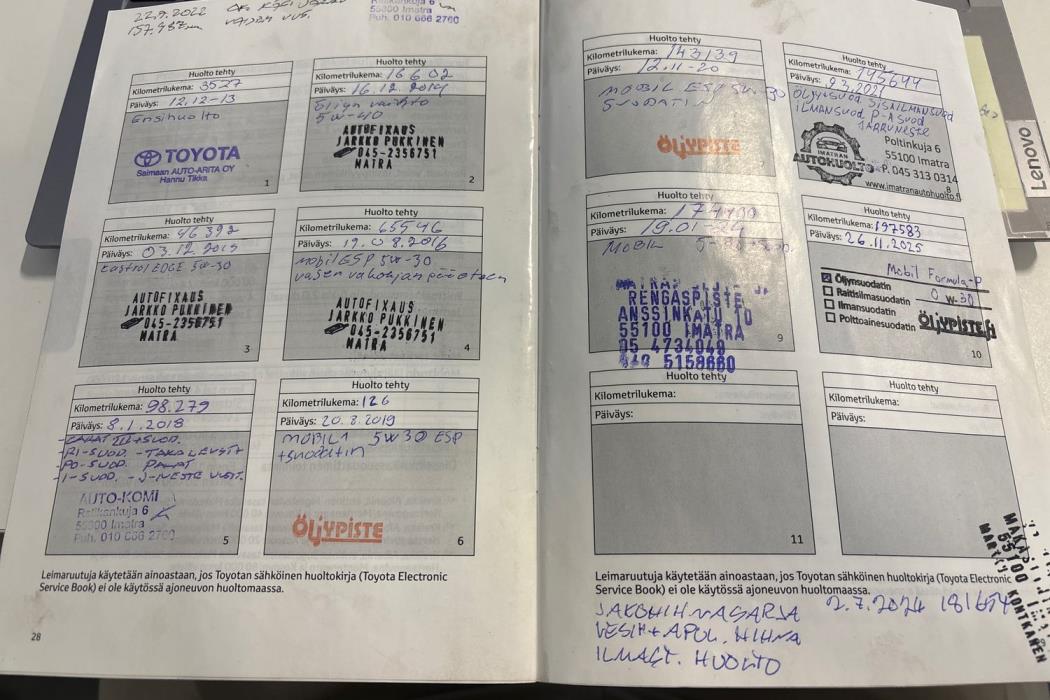 22.9.2022
157.987 km
55800 Imatra
Puh. 010 666 2760
Huolto tehty
Kilometrilukema: 3527
Päiväys: 12.12-13
Ensihuolto
TOYOTA
Saimaan AUTO-ARITA OY
Hannu Tikka
1
Huolto tehty
Kilometrilukema: 16602
Päiväys: 16.12.2014
Öljyn vaihto
5W-40
AUTOFIXAUS
JARKKO PUKKINEN
045-2356751
MATRA
2
Huolto tehty
Kilometrilukema: 46392
Päiväys: 03.12.2015
Castrol EDGE 5W-30
AUTOFIXAUS
JARKKO PUKKINEN
045-2356751
MATRA
3
Huolto tehty
Kilometrilukema: 65546
Päiväys: 19.08.2016
Mobil ESP 5W-30
vasen
AUTOFIXAUS
JARKKO PUKKINEN
045-2356751
MATRA
4
Huolto tehty
Kilometrilukema: 98.279
Päiväys: 8.1.2018
+SUOD.
-RI-SUOD. -TAKALEVYT+
-PO-SUOD. PALAT
-I-SUOD. -J-NESTE
AUTO-KOMI
Ratikankuja 6
55800 Imatra
Puh. 010 666 2760
5
Huolto tehty
Kilometrilukema: 126
Päiväys: 20.8.2019
MOBIL1 5W30 ESP
+suodatin
ÖLJYPISTE
6
Leimaruutuja käytetään ainoastaan, jos Toyotan sähköinen huoltokirja (Toyota Electronic
Service Book) ei ole käytössä ajoneuvon huoltomaassa.
28
Huolto tehty
Kilometrilukema: 143139
Päiväys: 12.11-20
MOBIL ESP 5W-30
SUODATIN
ÖLJYPISTE
Huolto tehty
Kilometrilukema:
Päiväys: 9.3.2021
ÖLJY+SUOD SISÄILMANSUOD
ILMANSUOD P-ASUOD
JARRUNESTE
IMATRAN
AUTOHUOLTO
Poltinkuja 6
55100 Imatra
P. 045 313 0314
www.imatranautohuolto.fi
8
Huolto tehty
Kilometrilukema:
Päiväys: 19.01-24
MOBIL
RENGASPISTE
ANSSINKATU 10
55100 IMATRA
05 4734049
040 5158660
9
Huolto tehty
Kilometrilukema: 197583
Päiväys: 26.11.2025
Mobil Formula-P
0W-30
Öljynsuodatin
Raitisilmasuodatin
Ilmansuodatin
Polttoainesuodatin
ÖLJYPISTE.fi
10
Huolto tehty
Kilometrilukema:
Päiväys:
11
Huolto tehty
Kilometrilukema:
Päiväys:
Leimaruutuja käytetään ainoastaan, jos Toyotan sähköinen huoltokirja (Toyota Electronic
Service Book) ei ole käytössä ajoneuvon huoltomaassa.
JAKOHIHNASARJA 2.7.2024 181654
VESIH+APUL. HIHNA
ILMAST. HUOLTO
55100
KONTKANEN
Lenovo